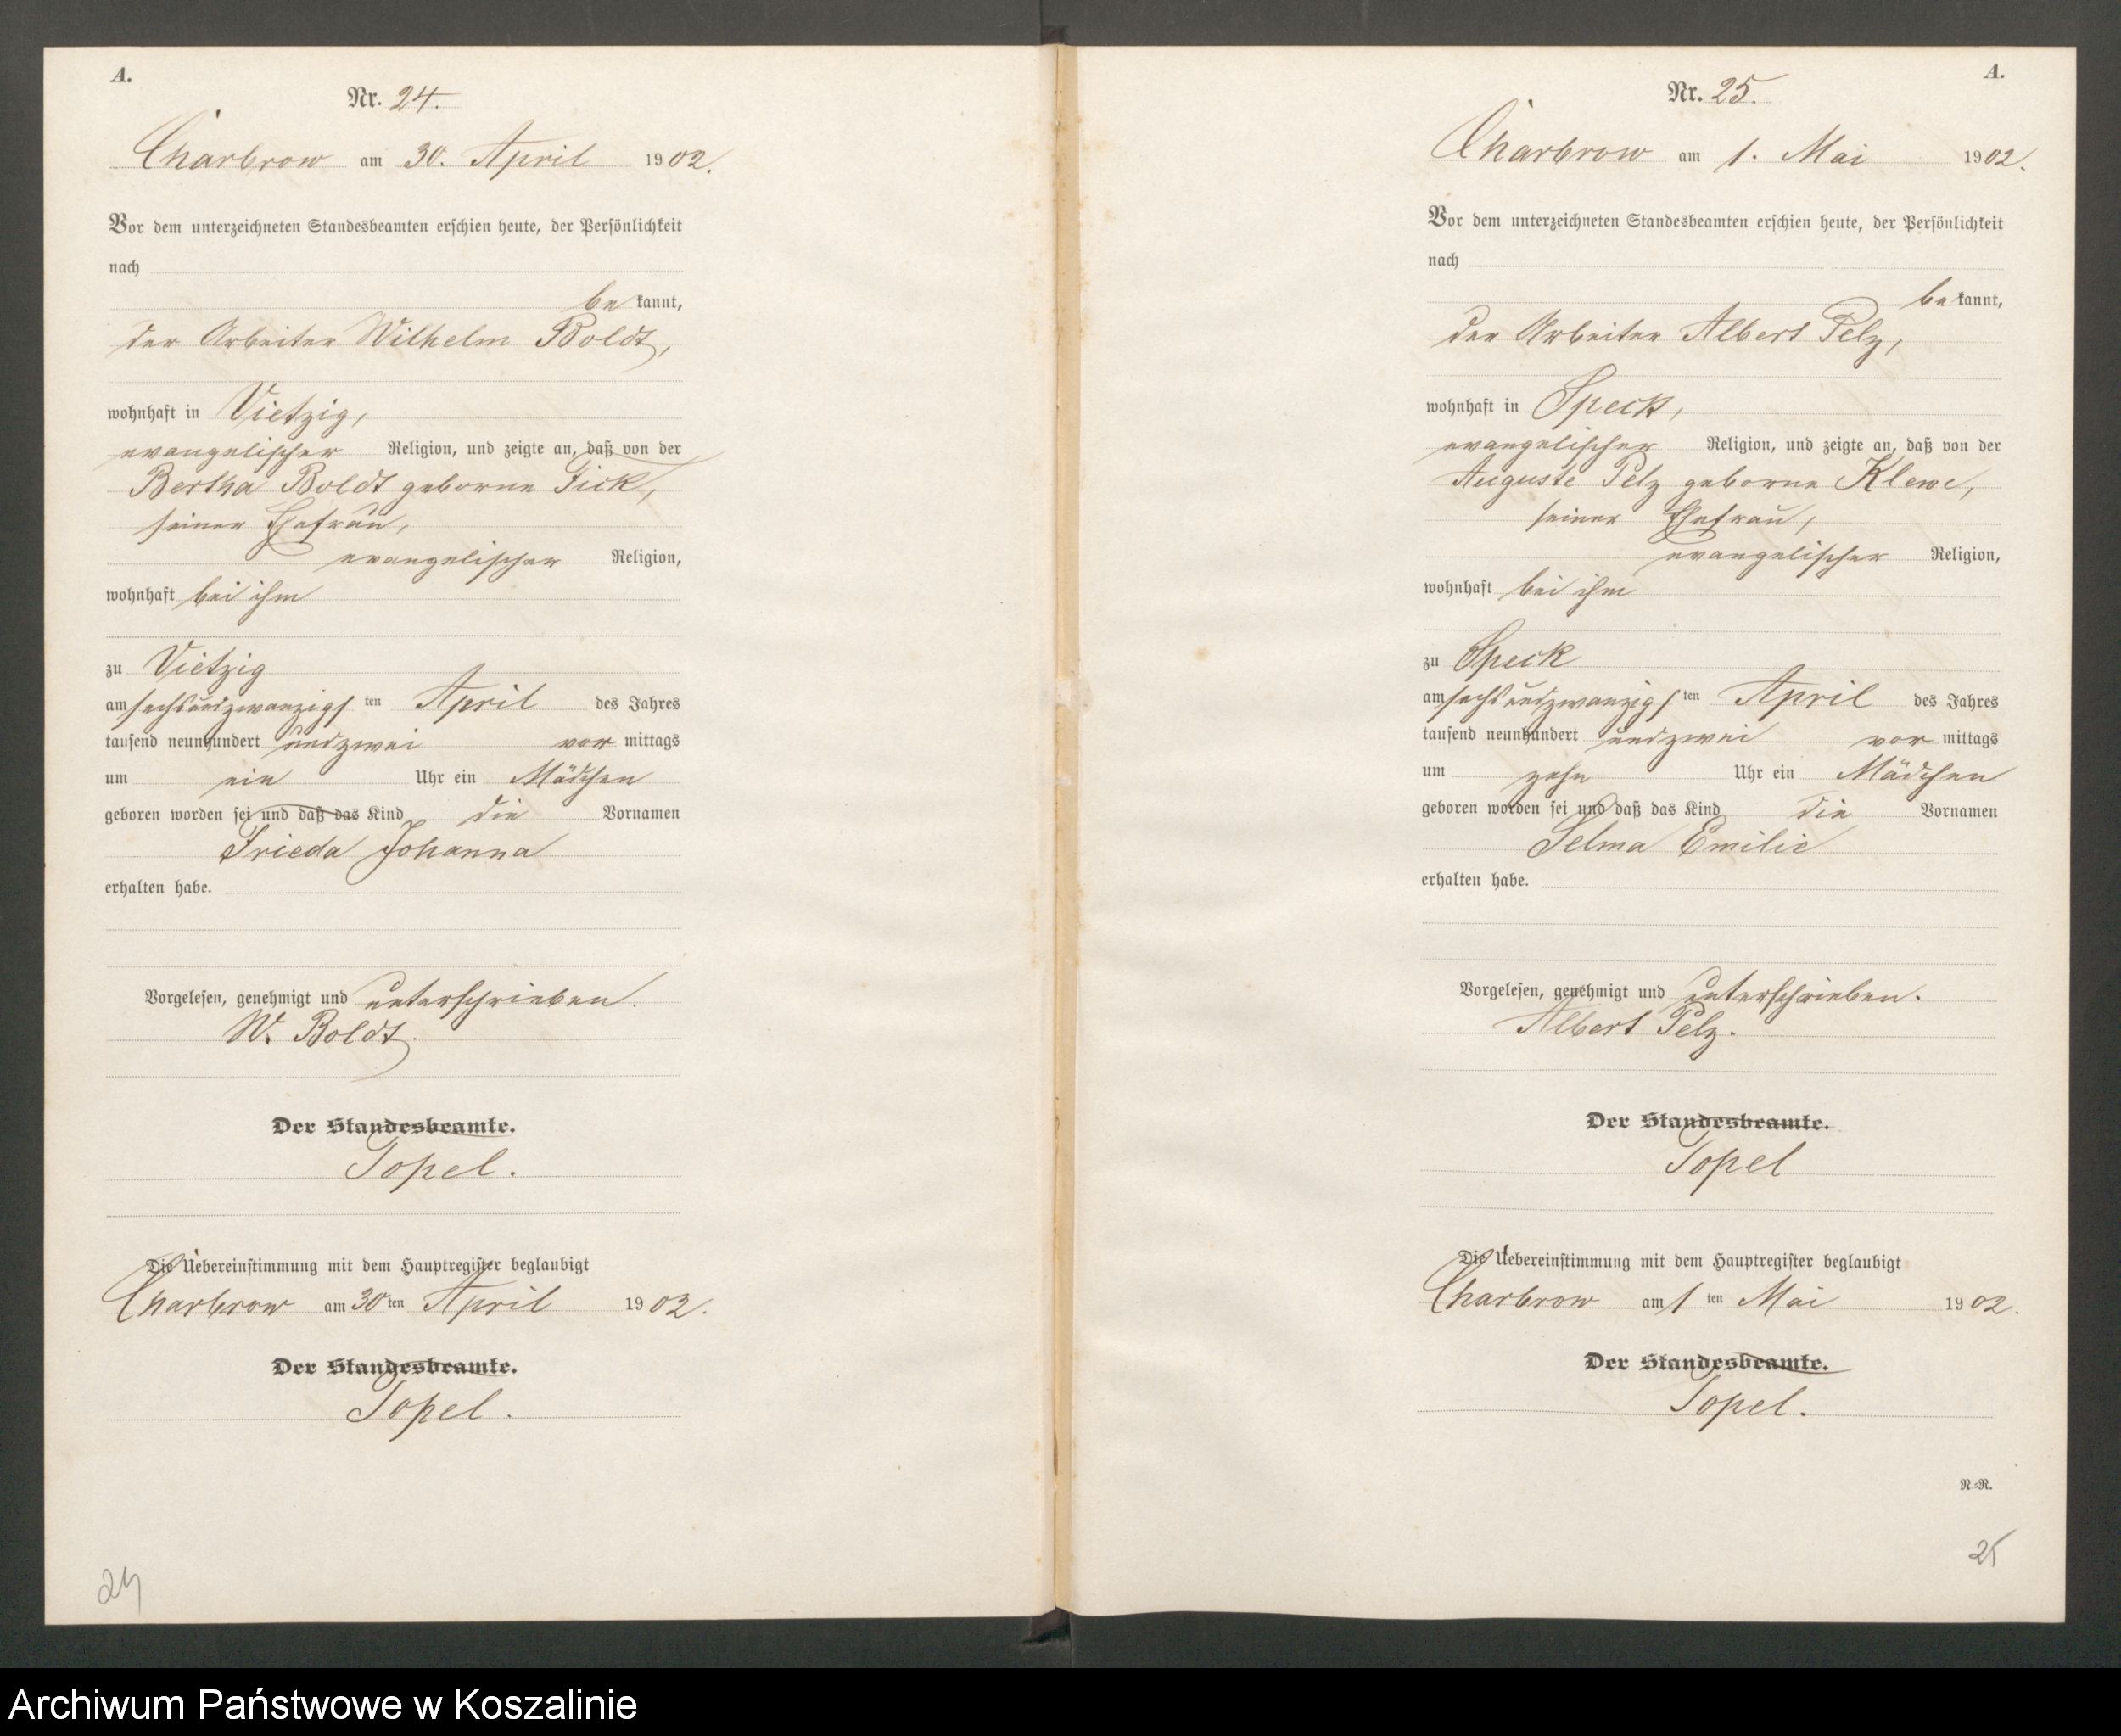 A.
Nr. 24.
Charbrow am 30. April 1902.
Vor dem unterzeichneten Standesbeamten erschien heute, der Persönlichkeit
nach
be kannt,
der Arbeiter Wilhelm Boldt,
wohnhaft in Vietzig,
evangelischer Religion, und zeigte an, daß von der
Bertha Boldt geborne Fick,
seiner Ehefrau,
evangelischer Religion,
wohnhaft bei ihm
zu Vietzig
am sechsundzwanzigsten April des Jahres
tausend neunhundert undzwei vor mittags
um ein Uhr ein Mädchen
geboren worden sei und daß das Kind die Vornamen
Frieda Johanna
erhalten habe.
Vorgelesen, genehmigt und unterschrieben.
W. Boldt.
Der Standesbeamte.
Topel.
Die Uebereinstimmung mit dem Hauptregister beglaubigt
Charbrow am 30 ten April 1902.
Der Standesbeamte.
Topel.
24
A.
Nr. 25.
Charbrow am 1. Mai 1902.
Vor dem unterzeichneten Standesbeamten erschien heute, der Persönlichkeit
nach
be kannt,
der Arbeiter Albert Pelz,
wohnhaft in Speck,
evangelischer Religion, und zeigte an, daß von der
Auguste Pelz geborne Klewe,
seiner Ehefrau,
evangelischer Religion,
wohnhaft bei ihm
zu Speck
am sechsundzwanzigsten April des Jahres
tausend neunhundert undzwei vor mittags
um zehn Uhr ein Mädchen
geboren worden sei und daß das Kind die Vornamen
Selma Emilie
erhalten habe.
Vorgelesen, genehmigt und unterschrieben.
Albert Pelz.
Der Standesbeamte.
Topel
Die Uebereinstimmung mit dem Hauptregister beglaubigt
Charbrow am 1 ten Mai 1902.
Der Standesbeamte.
Topel.
N=R.
25
Archiwum Państwowe w Koszalinie